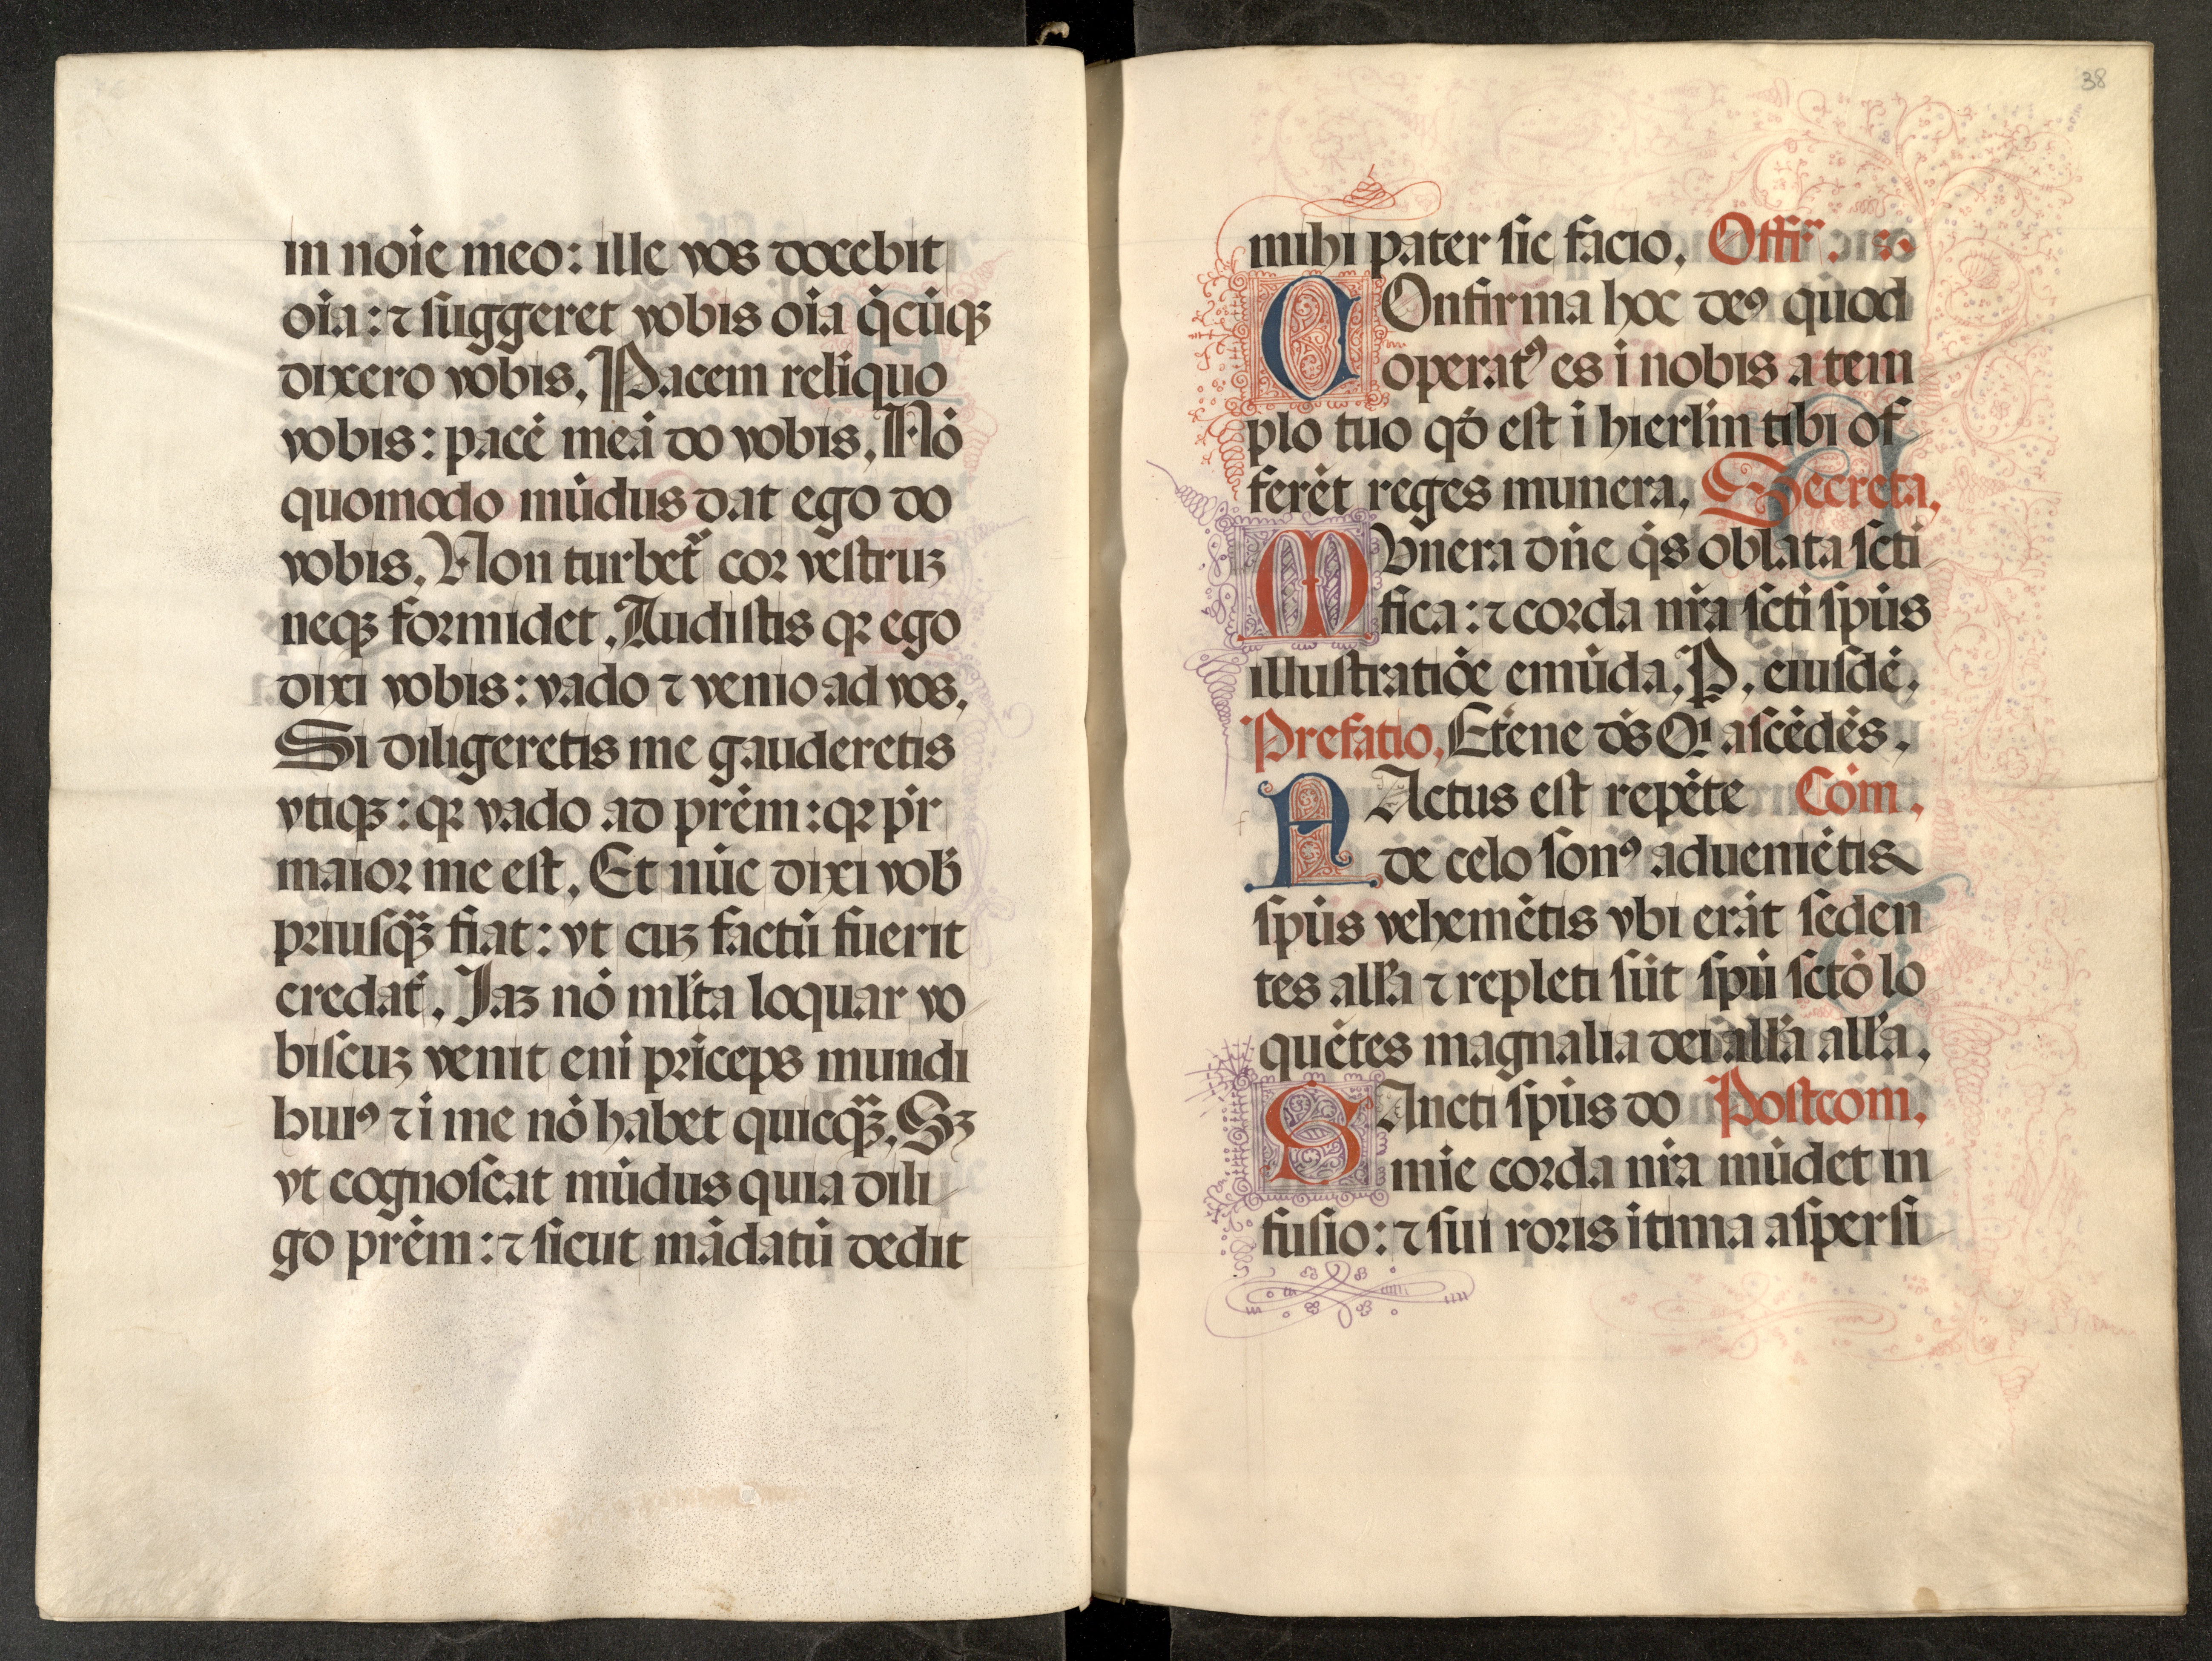 in noīe meo: ille vos docebit
oīa: ⁊ suggeret vobis oīa q̄cūqꝫ
dixero vobis. Pacem relīquo
vobis: pacē meā do vobis. Nō
quomodo mūdus dat ego do
vobis. Non turbet᷑ cor vestruꝫ
neqꝫ formidet. Audistis qꝛ ego
dixi vobis: vado ⁊ venio ad vos.
Si diligeretis me gauderetis
vtiqꝫ: qꝛ vado ad pr̄em: qꝛ pr̄
maior me est. Et nūc dixi vob̄
priusqꝫ̄ fiat: vt cuꝫ factū fuerit
credat̄. Iaꝫ nō ml̄ta loquar vo
biscuꝫ venit eni prīceps mundi
huiꝰ ⁊ ī me nō habet quicqꝫ̄. Sꝫ
vt cognoscat mūdus quia dili
go pr̄em: ⁊ sicut mādatū dedit
38
mihi pater sic facio. Offr̄.
COnfirma hoc deꝰ quod
operatꝰ es ī nobis a tem
plo tuo qđ est ī hierl̄m tibi of
ferēt reges munera. Secreta.
MVnera dn̄e q̄s oblata scti
fica: ⁊ corda nr̄a scti spūs
illustratiōe emūda. P. eiusdē.
Prefatio. Etēne ds̄ Qi ascēdēs.
FActus est repēte Cōm.
de celo sonꝰ aduenietis
spūs vehemētis vbi erāt seden
tes all'a ⁊ repleti sūt spū sctō lo
quētes magnalia dei all'a all'a.
SAncti spūs do Postcom.
mīe corda nr̄a mūdet in
fusio: ⁊ sui roris ītima aspersi